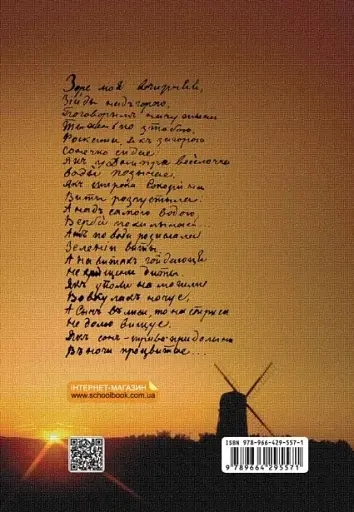 Зоре моя вечирняя,
Зійды надъ горою,
Поговорымъ тихусенько
зъ тобою,
Роскажы, якъ за горою
Сонечко сидає
Якъ у Днипра веселочка
Воду позычає.
Якъ широка сокорина
Виты роспустыла
А надъ самою водою
Верба похилылась...
Ажъ по води розіслала
Зелени виты,
А на витахъ гойдаютця
Нехрищени диты.
Якъ у поли на могыли
Вовкулакъ ночує,
А сычъ въ лиси, та на стриси
Недолю вищує.
Якъ сонъ-трава при долыни
Вночи процвитає...
ІНТЕРНЕТ-МАГАЗИН
www.schoolbook.com.ua
ISBN 978-966-429-557-1
9 789664 295571